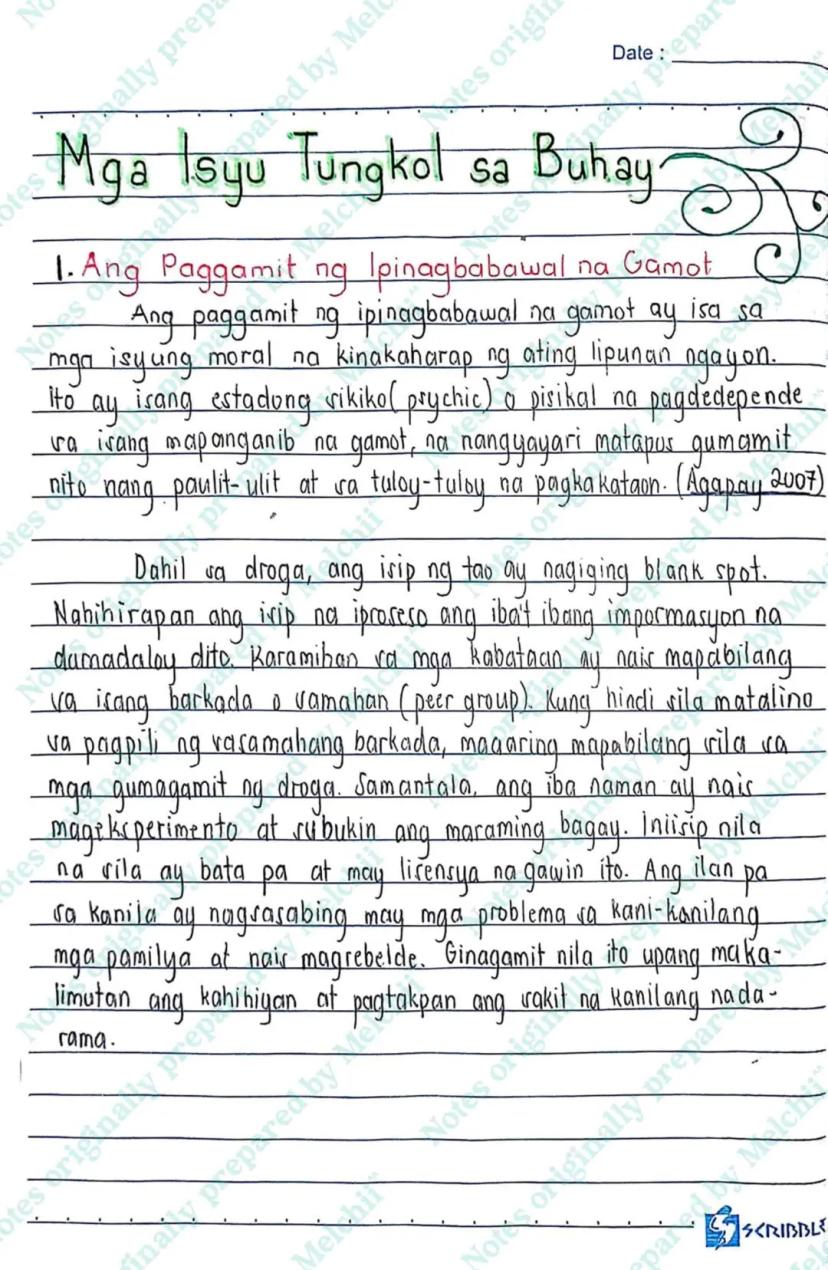 Date :
Mga Isyu Tungkol sa Buhay
1. Ang Paggamit ng Ipinagbabawal na Gamot
Ang paggamit ng ipinagbabawal na gamot ay isa sa
mga isyung moral na kinakaharap ng ating lipunan ngayon.
ito ay isang estadong sikiko (psychic) o pisikal na pagdedepende
sa isang mapanganib na gamot, na nangyayari matapos gumamit
nito nang paulit-ulit at sa tuloy-tuloy na pagkakataon. (Agapay 2007)
Dahil sa droga, ang isip ng tao ay nagiging blank spot.
Nahihirapan ang isip na iproseso ang iba't ibang impormasyon na
dumadaloy dito. Karamihan sa mga kabataan ay nais mapabilang
sa isang barkada o samahan (peer group). Kung hindi sila matalino
sa pagpili ng sasamahang barkada, maaaring mapabilang sila sa
mga gumagamit ng droga. Samantala, ang iba naman ay nais
mageksperimento at subukin ang maraming bagay. Iniisip nila
na sila ay bata pa at may lisensya na gawin ito. Ang ilan pa
sa kanila ay nagsasabing may mga problema sa kani-kanilang
mga pamilya at nais magrebelde. Ginagamit nila ito upang maka-
limutan ang kahihiyan at pagtakpan ang sakit na kanilang nada-
rama.
SCRIBBLE
Notes originally prepared by Melchii